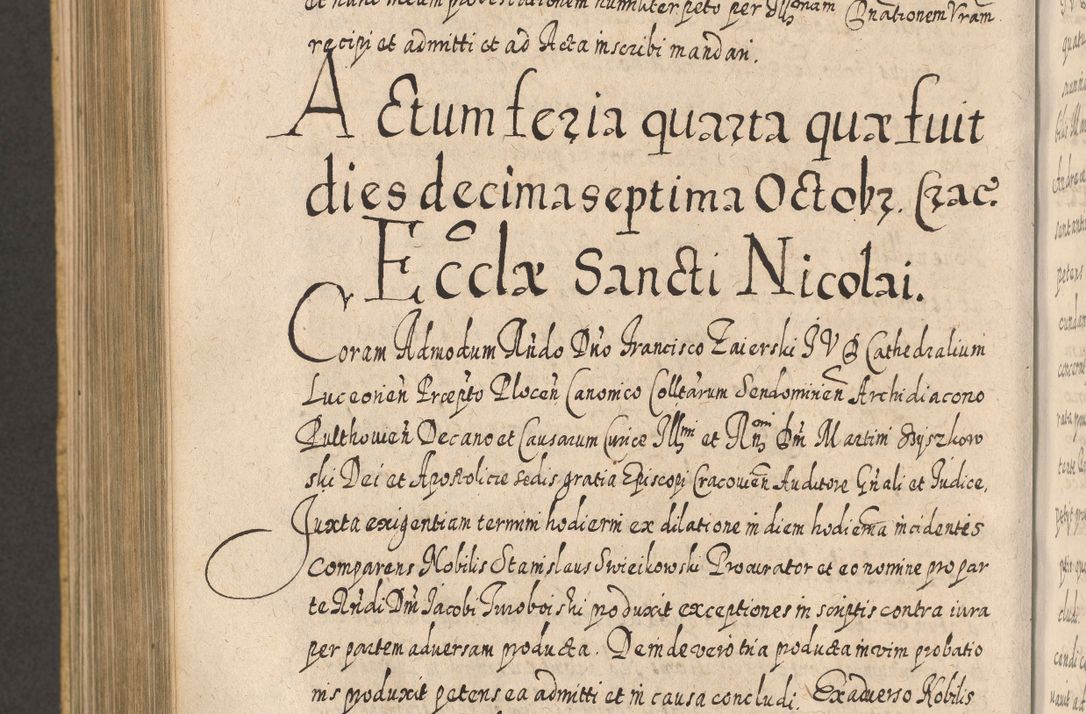 et nunc meum protestationem humiliter peto per Illmam Dnationem Vram
recipi et admitti et ad Acta inscribi mandari.
Actum feria quarta quæ fuit
dies decimaseptima Octobr. Crac.
Ecclæ Sancti Nicolai.
Coram Admodum Rndo Dno Francisco Zaierski I V D Cathedralium
Luceorien Præpto Plocen Canonico Colltarum Sendomirien Archidiacono
Pulthovien Decano et Causarum Curiæ Illmi et Rmi Dni Martini Szyszkow
ski Dei et Apostolicæ sedis gratia Episcopi Cracovien Auditore Gnali et Iudice,
Juxta exigentiam termini hodierni ex dilatione in diem hodierna incidentis
Comparens Nobilis Stanislaus Swiecikowski Procurator et eo nomine pro par
te Rndi Dni Jacobi Turoboiski produxit exceptiones in scriptis contra iura
per partem adversam producta. Deinde vero tria producta in vim probatio
nis produxit petens ea admitti et in causa concludi. Ex adverso Nobilis